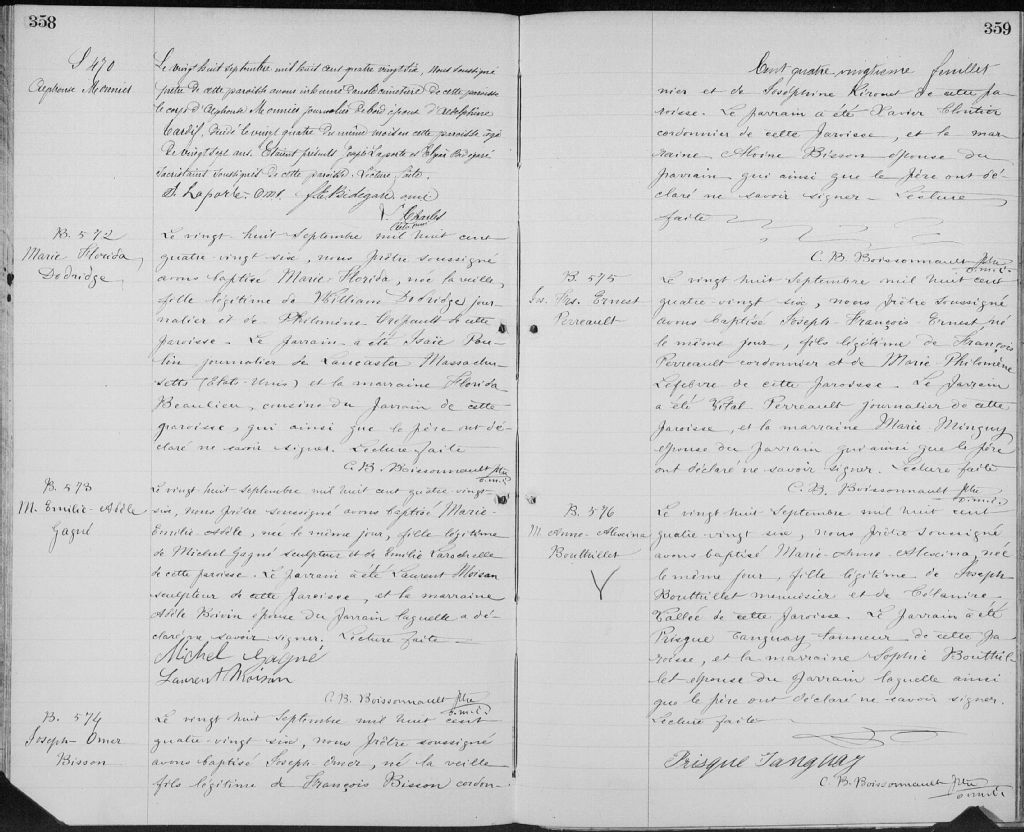 358
S 470
Alphonse Meunier
Le vingt huit septembre mil huit cent quatre vingt six, nous soussigné
prêtre de cette paroisse avons inhumé dans le cimetière de cette paroisse
le corps d'Alphonse Meunier journalier de bord époux d'Adolphine
Tardif, décédé le vingt quatre du même mois en cette paroisse âgé
de vingt sept ans. Etaient présents Joseph Laporte et Elzéar Bédégaré
sacristains soussignés de cette paroisse. Lecture faite.
A. Laporte. omi
Charles
B. 572
Marie Florida
Dodridge
Le vingt-huit Septembre mil huit cent
quatre-vingt six, nous prêtre soussigné
avons baptisé Marie-Florida, née la veille,
fille légitime de William Dodridge jour-
nalier et de Philomène Crépault de cette
paroisse. Le parrain a été Isaïe Pou-
lin journalier de Lancaster Massachu-
setts (Etats-Unis) et la marraine Florida
Beaulieu, cousine du parrain de cette
paroisse, qui ainsi que le père ont dé-
claré ne savoir signer. Lecture faite
C. B. Boissonnault ptre
o.m.i.
B. 573
M. Emilie-Adèle
Gagné
Le vingt-huit Septembre mil huit cent quatre-vingt
six, nous prêtre soussigné avons baptisé Marie-
Emilie-Adèle, née le même jour, fille légitime
de Michel Gagné sculpteur et de Emilie Larochelle
de cette paroisse. Le parrain a été Laurent Moisan
sculpteur de cette paroisse, et la marraine
Adèle Boivin épouse du parrain laquelle a dé-
claré ne savoir signer. Lecture faite
Michel Gagné
Laurent Moisan
C. B. Boissonnault ptre
o.m.i.
B. 574
Joseph-Omer
Bisson
Le vingt huit Septembre mil huit cent
quatre-vingt six, nous prêtre soussigné
avons baptisé Joseph Omer, né la veille
fils légitime de François Bisson cordon-
359
Cent quatre vingtième feuillet
nier et de Joséphine Kirouet de cette pa-
roisse. Le parrain a été Xavier Cloutier
cordonnier de cette paroisse, et la mar-
raine Alvine Bisson épouse du
parrain qui ainsi que le père ont dé-
claré ne savoir signer. Lecture
faite
C. B. Boissonnault ptre
o.m.i.
B. 575
Jos. Frs. Ernest
Perreault
Le vingt huit Septembre mil huit cent
quatre-vingt six, nous prêtre soussigné
avons baptisé Joseph-François Ernest, né
le même jour, fils légitime de François
Perreault cordonnier et de Marie-Philomène
Lefebvre de cette paroisse. Le parrain
a été Vital Perreault journalier de cette
paroisse, et la marraine Marie Minguy
épouse du parrain qui ainsi que le père
ont déclaré ne savoir signer. Lecture faite
C. B. Boissonnault ptre
o.m.i.
B. 576
M. Anne-Alexina
Bouthillet
Le vingt-huit Septembre mil huit cent
quatre-vingt six, nous prêtre soussigné
avons baptisé Marie-Anne-Alexina, née
le même jour, fille légitime de Joseph
Bouthillet menuisier et de Célanire
Vallée de cette paroisse. Le parrain a été
Prisque Tanguay tanneur de cette pa-
roisse, et la marraine Sophie Bouthil-
let épouse du parrain laquelle ainsi
que le père ont déclaré ne savoir signer.
Lecture faite
Prisque Tanguay
C. B. Boissonnault ptre
o.m.i.